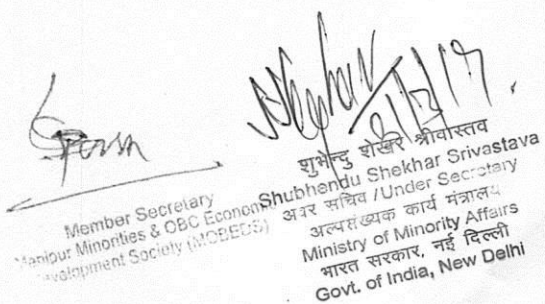 Member Secretary
Manipur Minorities & OBC Economic
Development Society (MOBEDS)
शुभेन्दु शेखर श्रीवास्तव
Shubhendu Shekhar Srivastava
अवर सचिव /Under Secretary
अल्पसंख्यक कार्य मंत्रालय
Ministry of Minority Affairs
भारत सरकार, नई दिल्ली
Govt. of India, New Delhi